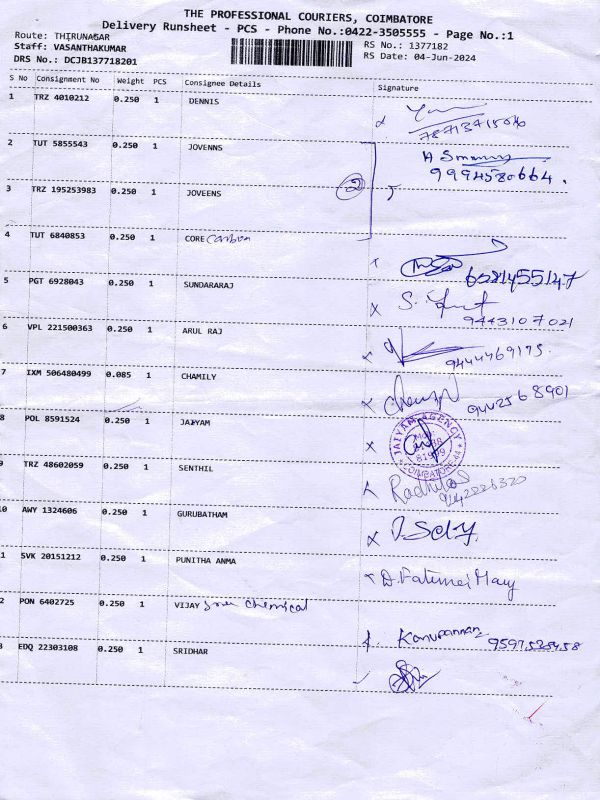 THE PROFESSIONAL COURIERS, COIMBATORE
Delivery Runsheet - PCS - Phone No.:0422-3505555 - Page No.:1
Route: THIRUNAGAR
RS No.: 1377182
Staff: VASANTHAKUMAR
RS Date: 04-Jun-2024
DRS No.: DCJB137718201
S No Consignment No Weight PCS Consignee Details Signature
1 TRZ 4010212 0.250 1 DENNIS
2 TUT 5855543 0.250 1 JOVENNS
9994580664.
3 TRZ 195253983 0.250 1 JOVEENS
2
4 TUT 6840853 0.250 1 CORE Carbon
5 PGT 6928043 0.250 1 SUNDARARAJ
9443107021
6 VPL 221500363 0.250 1 ARUL RAJ
9444469175.
7 IXM 506480499 0.085 1 CHAMILY
9442568901
8 POL 8591524 0.250 1 JAIYAM
JAIYAM AGENCY
COIMBATORE-44
9 TRZ 48602059 0.250 1 SENTHIL
0 AWY 1324606 0.250 1 GURUBATHAM
1 SVK 20151212 0.250 1 PUNITHA ANMA
D. Fatima Mary
2 PON 6402725 0.250 1 VIJAY Sree chemical
3 EDQ 22303108 0.250 1 SRIDHAR